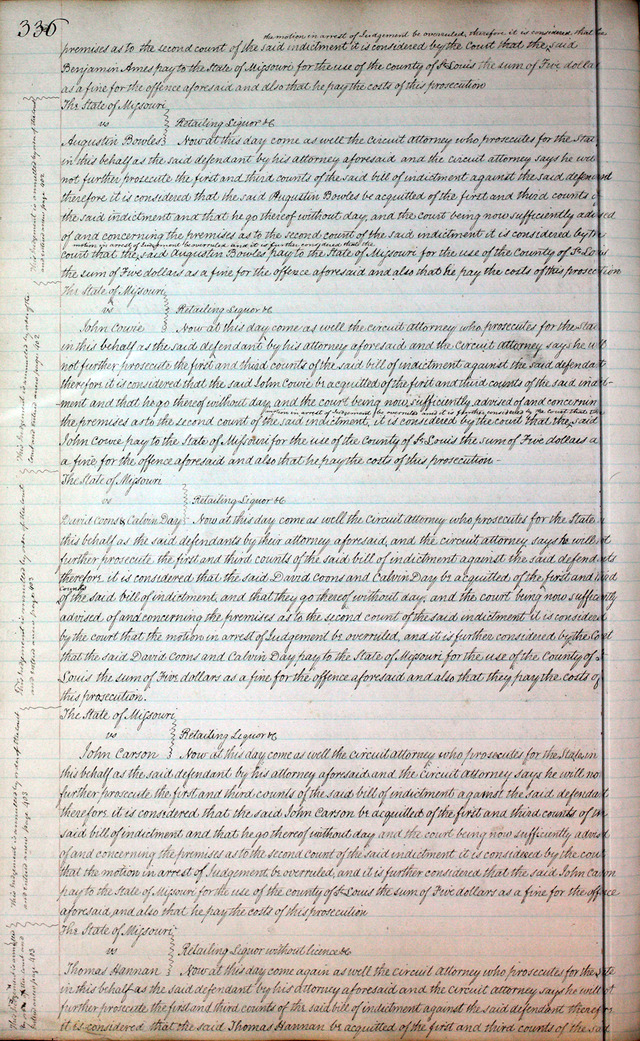 336
the motion in arrest of Judgement be overruled, therefore it is considered that the
premises as to the second count of the said indictment it is considered by the Court that the said
Benjamin Ames pay to the State of Missouri for the use of the county of St Louis the sum of Five dollars
as a fine for the offence aforesaid and also that he pay the costs of this prosecution
The State of Missouri
vs Retailing Liquor &c
Augustin Bowles Now at this day come as well the circuit attorney who prosecutes for the State
in this behalf as the said defendant by his attorney aforesaid and the circuit attorney says he will
not further prosecute the first and third counts of the said bill of indictment against the said defendant
therefore it is considered that the said Augustin Bowles be acquitted of the first and third counts
the said indictment and that he go thereof without day, and the court being now sufficiently advised
of and concerning the premises as to the second count of the said indictment it is considered by the
motion in arrest of Judgement be overruled, and it is further considered that the
court that the said Augustin Bowles pay to the State of Missouri for the use of the County of St Louis
the sum of Five dollars as a fine for the offence aforesaid and also that he pay the costs of this prosecution
The State of Missouri
vs Retailing Liquor &c
John Cowie Now at this day come as well the circuit attorney who prosecutes for the State
in this behalf as the said defendant by his attorney aforesaid and the circuit attorney says he will
not further prosecute the first and third counts of the said bill of indictment against the said defendant
therefore it is considered that the said John Cowie be acquitted of the first and third counts of the said indict-
-ment and that he go thereof without day, and the court being now sufficiently advised of and concerning
motion in arrest of Judgement be overruled and it is further considered by the Court that the
the premises as to the second count of the said indictment, it is considered by the court that the said
John Cowie pay to the State of Missouri for the use of the County of St Louis the sum of Five dollars a
a fine for the offence aforesaid and also that he pay the costs of this prosecution -
The State of Missouri
vs Retailing Liquor &c
David Coons & Calvin Day Now at this day come as well the circuit Attorney who prosecutes for the State
this behalf as the said defendants by their attorney aforesaid, and the circuit attorney says he will not
further prosecute the first and third counts of the said bill of indictment against the said defendants
therefore it is considered that the said David Coons and Calvin Day be acquitted of the first and third
counts
of the said bill of indictment, and that they go thereof without day, and the court being now sufficiently
advised of and concerning the premises as to the second count of the said indictment it is considered
by the court that the motion in arrest of Judgement be overruled, and it is further considered by the Court
that the said David Coons and Calvin Day pay to the State of Missouri for the use of the County of St
Louis the sum of Five dollars as a fine for the offence aforesaid and also that they pay the costs of
this prosecution.
The State of Missouri
vs Retailing Liquor &c
John Carson Now at this day come as well the circuit attorney who prosecutes for the State in
this behalf as the said defendant by his attorney aforesaid and the circuit Attorney says he will not
further prosecute the first and third counts of the said bill of indictment against the said defendant
therefore it is considered that the said John Carson be acquitted of the first and third counts of the
said bill of indictment and that he go thereof without day and the court being now sufficiently advised
of and concerning the premises as to the second count of the said indictment it is considered by the court
that the motion in arrest of Judgement be overruled, and it is further considered that the said John Carson
pay to the State of Missouri for the use of the county of St Louis the sum of Five dollars as a fine for the offence
aforesaid, and also that he pay the costs of this prosecution
The State of Missouri
vs Retailing Liquor without licence &c
Thomas Hannan Now at this day come again as well the circuit Attorney who prosecutes for the State
in this behalf as the said defendant by his attorney aforesaid and the circuit Attorney says he will not
further prosecute the first and third counts of the said bill of indictment against the said defendant therefore
it is considered that the said Thomas Hannan be acquitted of the first and third counts of the said